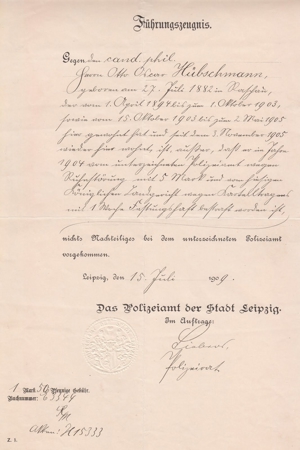 Führungszeugnis.
Gegen den cand. phil.
Herrn Otto Oscar Hübschmann,
geboren am 27. Juli 1882 in
der vom 1. April 1894 bis zum 1. Oktober 1903,
sowie vom 15. Oktober 1903 bis zum 1. Mai 1905
hier gewohnt hat und seit dem 3. November 1905
wieder hier wohnt, ist, außer, daß er im Jahre
1904 vom unterzeichneten Polizeiamt wegen
Ruhestörung mit 5 Mark und vom hiesigen
Königlichen Landgericht wegen Kartelltragens
mit 1 Woche Festungshaft bestraft worden ist,
nichts Nachteiliges bei dem unterzeichneten Polizeiamt
vorgekommen.
Leipzig, den 15. Juli 1909.
Das Polizeiamt der Stadt Leipzig.
Im Auftrage:
Polizeirat
1 Mark 50 Pfennige Gebühr.
Buchnummer: 63344
Akten: H 15333
Z. 5.